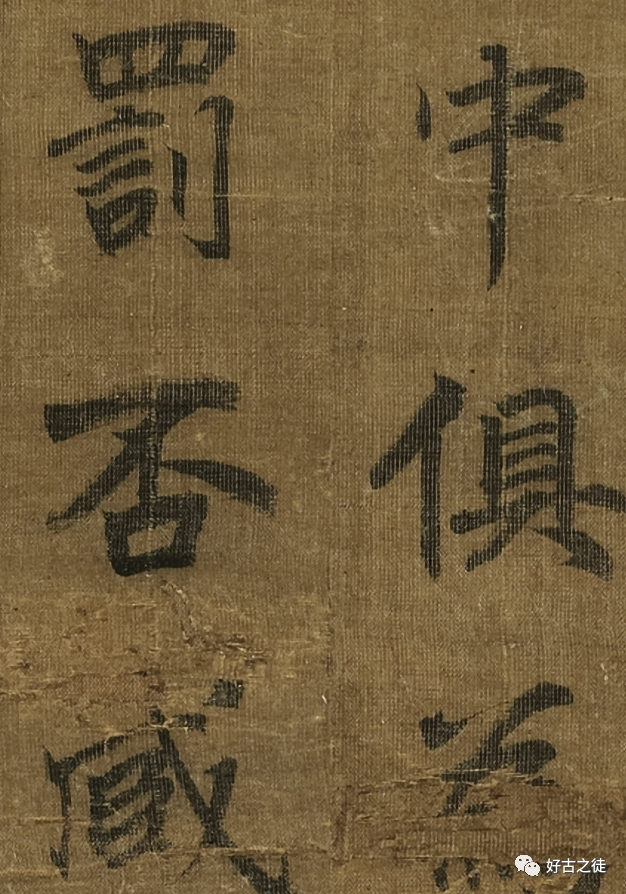 中俱為
罰否臧
好古之徒